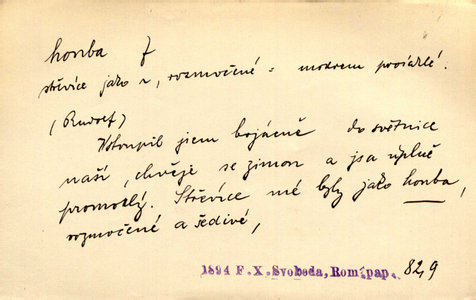 honba f
střevíce jako z, rozmočené =
(Rudolf)
Vstoupil jsem bojácně do světnice
naší, chvěje se zimou a jsa úplně
promoklý. Střevíce mé byly jako honba,
rozmočené a šedivé,
1894 F.X.Svoboda, Romápap. 82,9